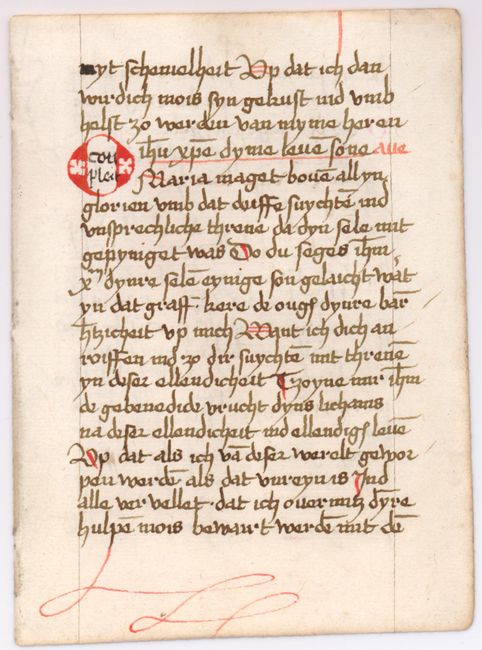 myt schemelheit Vp dat ich dan
wirdich mois syn gekust ind vmb
helst zo werden van myme heren
ihū xp̄e dyme leuē sone aue
com
plet
Maria maget bouē all yn
glorien vmb dat duffe suychtē ind
vnsprechliche threne da dyn sele mit
gepyniget was Do du seges ihm̄
xp̄m dynre selē eynige son gelaicht wāt
yn dat graff kere de ougē dynre bar
htzicheit vp mich Want ich dich an
roiffen ind zo dir suychtē mit threnē
yn deser ellendicheit Tzoyne mir ihm̄
de gebenedide vrucht dyns lichams
na deser ellendicheit ind ellendigē leuē
Vp dat als ich vā deser werelt gewor
pen werdē als dat vnreyn is Ind
alle ver vellet dat ich ouermitz dȳre
hulpē mois bewairt werdē mit dē